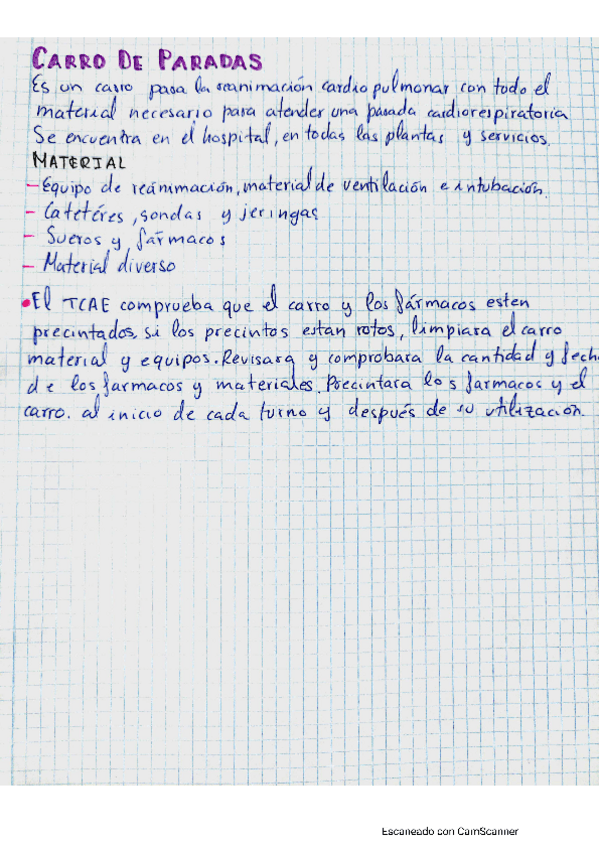 CARRO DE PARADAS
Es un carro para la reanimación cardiopulmonar con todo el
material necesario para atender una parada cardiorespiratoria
Se encuentra en el hospital, en todas las plantas y servicios.
MATERIAL
- Equipo de reánimación, material de ventilación e intubación.
- Catetéres, sondas y jeringas
- Sueros y fármacos
- Material diverso
• El TCAE comprueba que el carro y los fármacos esten
precintados, si los precintos estan rotos, limpiara el carro
material y equipos. Revisara y comprobara la cantidad y fech
de los farmacos y materiales. Precintara los farmacos y el
carro. al inicio de cada turno y después de su utilización.
Escaneado con CamScanner